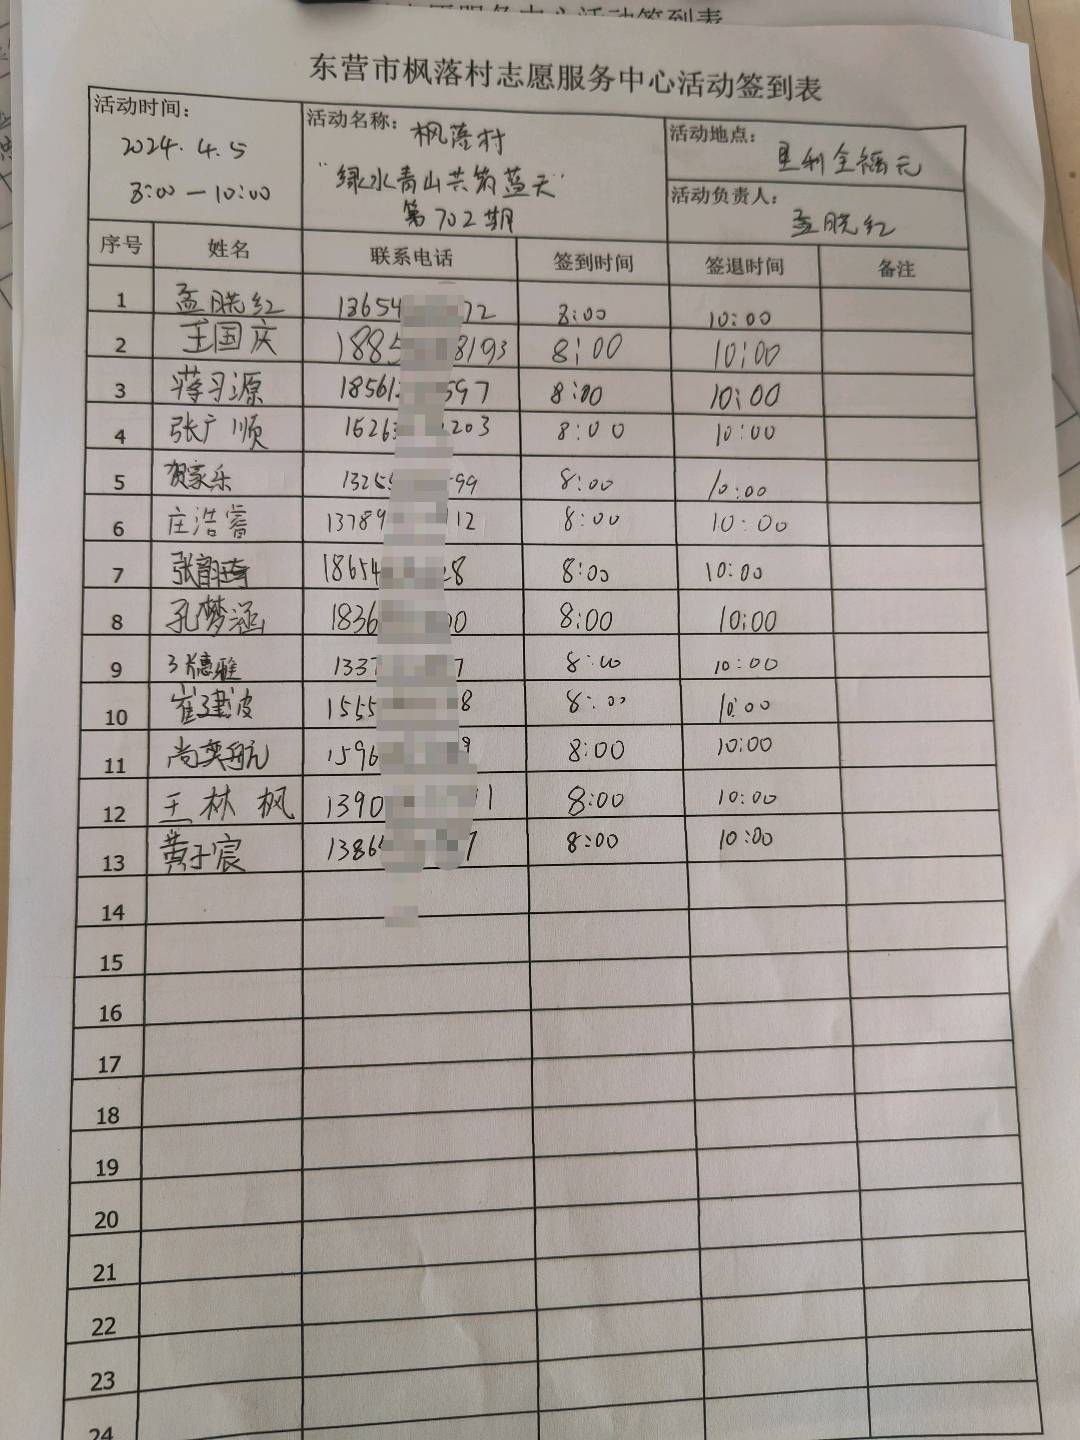 东营市枫落村志愿服务中心活动签到表
活动时间：
2024.4.5
8:00—10:00
活动名称：枫落村
"绿水青山共筑蓝天"
第702期
活动地点：垦利全福元
活动负责人：孟晓红
序号 姓名 联系电话 签到时间 签退时间 备注
1 孟晓红 13654 72 8:00 10:00
2 王国庆 1885 8193 8:00 10:00
3 蒋习源 18561 597 8:00 10:00
4 张广顺 1526 203 8:00 10:00
5 贺家乐 1325 99 8:00 10:00
6 庄浩睿 13789 112 8:00 10:00
7 张韵琦 18654 28 8:00 10:00
8 孔梦涵 1836 00 8:00 10:00
9 张德雅 1337 7 8:00 10:00
10 崔建波 1555 8 8:00 10:00
11 尚奕航 1596 9 8:00 10:00
12 王林枫 1390 1 8:00 10:00
13 黄子宸 1386 7 8:00 10:00
14
15
16
17
18
19
20
21
22
23
24